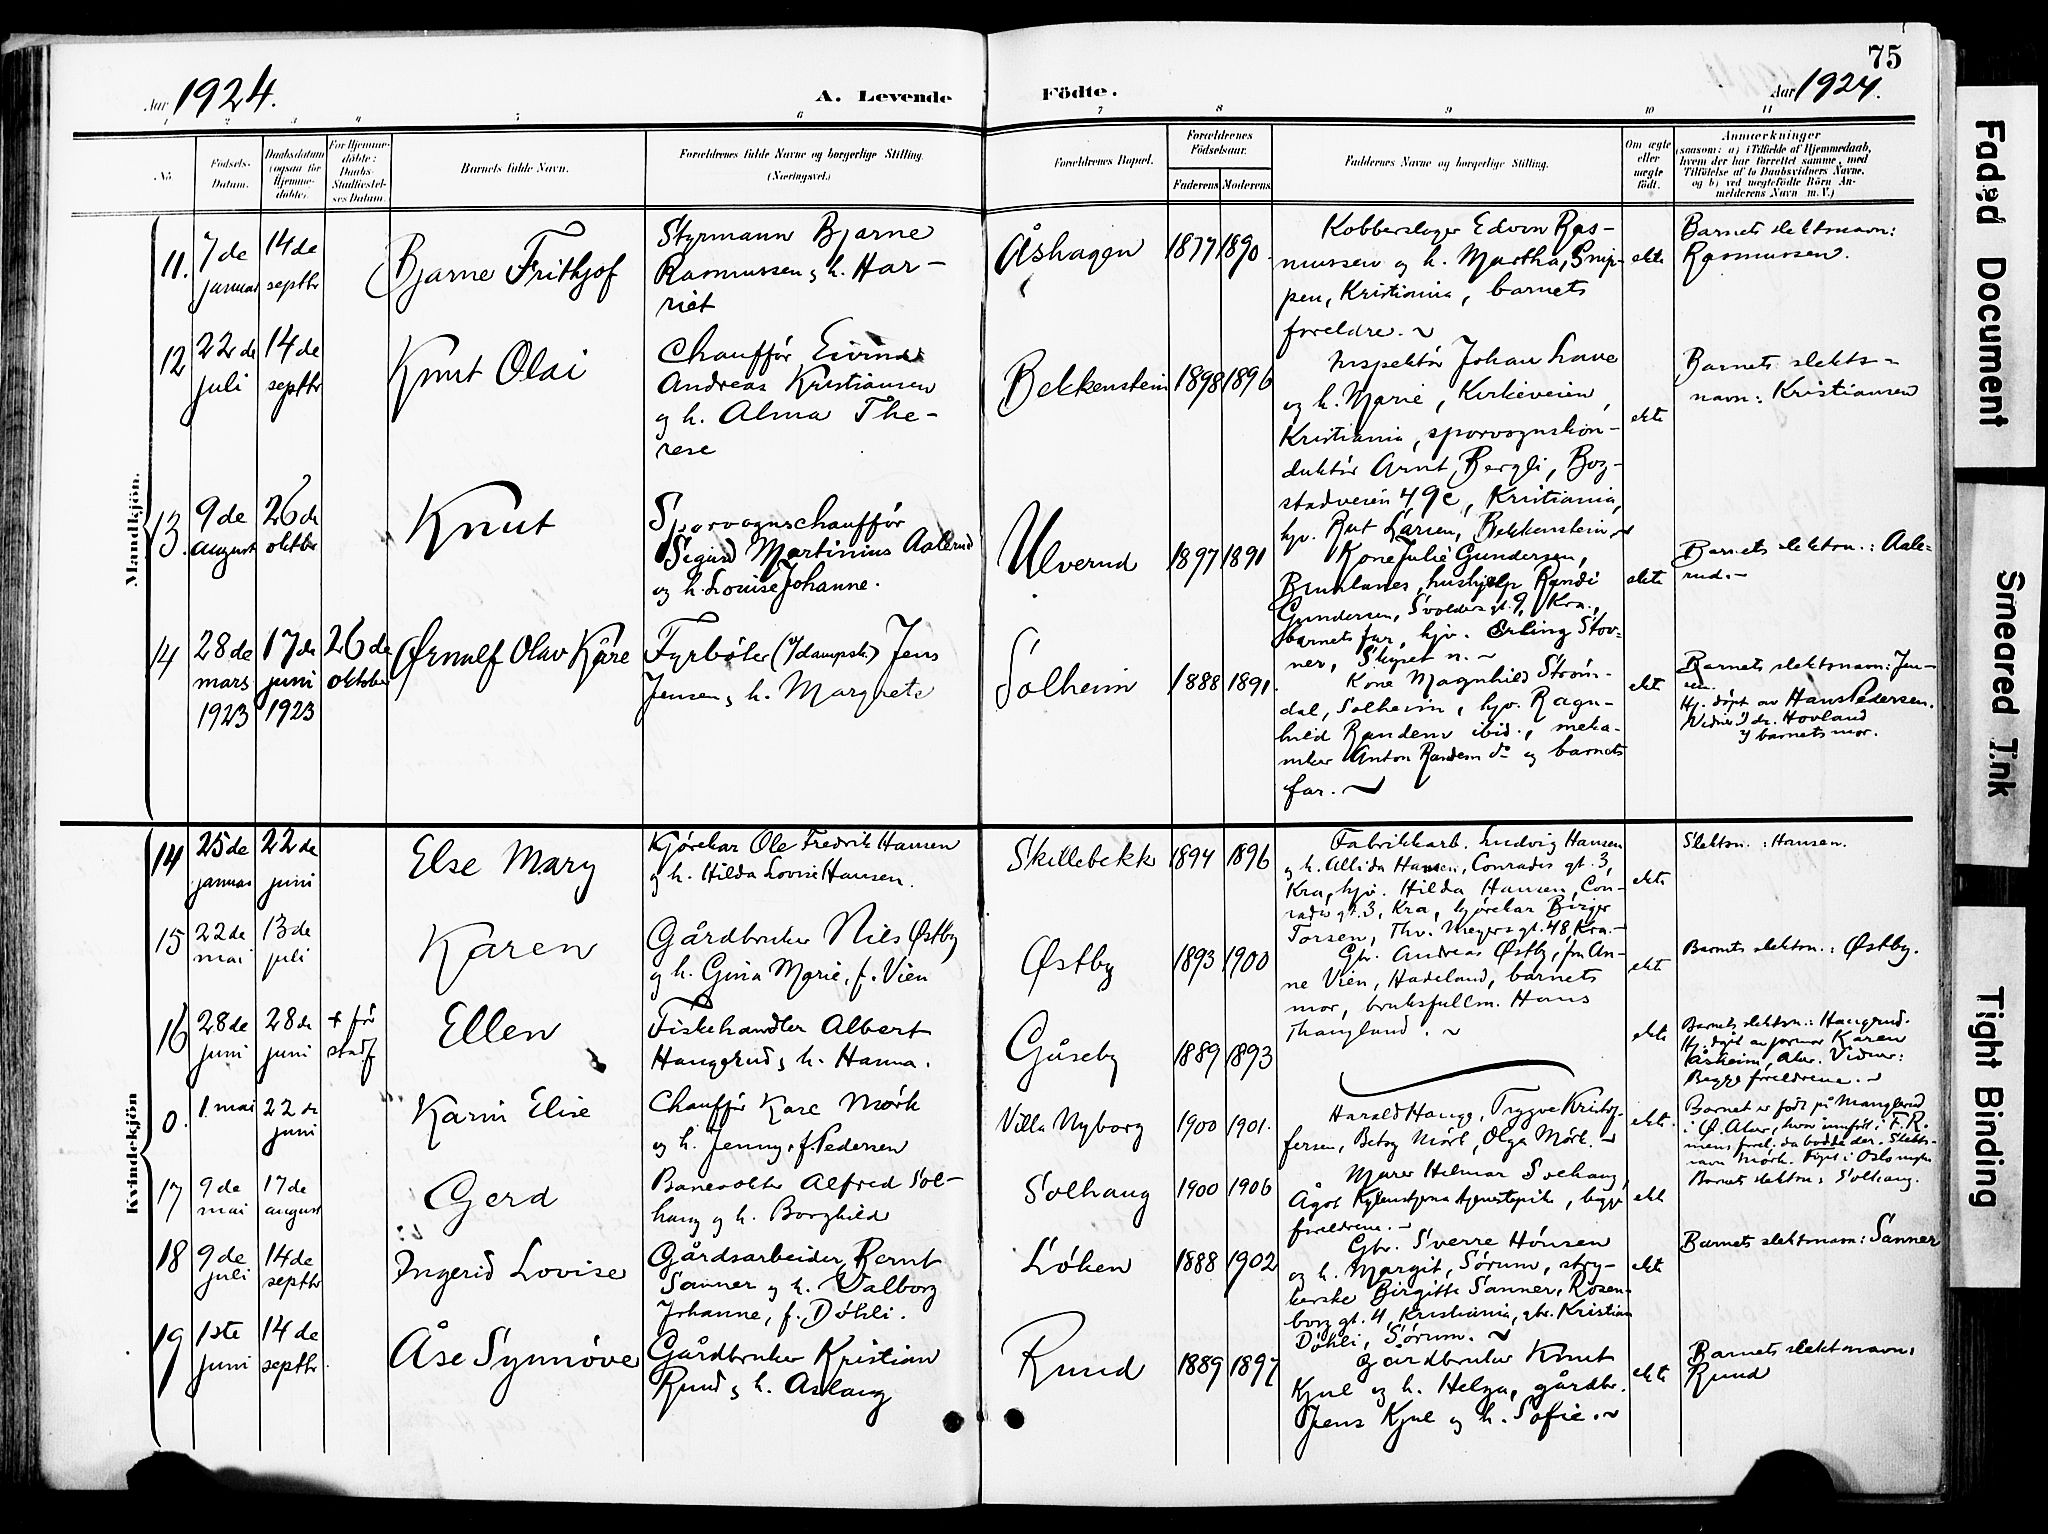 75
Aar 1924.
A. Levende
Födte.
Aar 1924.
1 2 3 4 5 6 7 8 9 10 11
No
Födsels-
Datum.
Daabsdatum
(ogsaa for
Hjemme-
døbte).
For Hjemme-
döbte:
Daabs-
Stadfæstel-
ses Datum.
Barnets fulde Navn.
Forældrenes fulde Navne og borgerlige Stilling.
(Næringsvei.)
Forældrenes Bopæl.
Forældrenes
Födselsaar.
Faderens Moderens
Faddernes Navne og borgerlige Stilling.
Om ægte
eller
uægte
født.
Anmærkninger
(saasom: a) i Tilfælde af Hjemmedaab,
hvem der har forrettet samme, med
Tilføielse af to Daabsvidners Navne,
og b) ved uægtefödte Börn An-
melderens Navn m. V.)
Mandkjön.
11.
7de
januar
14de
septbr
Bjarne Frithjof
Styrmann Bjarne
Rasmussen, h. Har-
riet
Åshagen
1877 1890.
Kobberslager Edvin Ras-
mussen og h. Martha, Grüp-
pen, Kristiania, barnets
foreldre.
ekte
Barnets slektsnavn:
Rasmussen.
12
22de
juli
14de
septbr
Knut Olai
Chauffør Eivind
Andreas Kristiansen
og h. Alma The-
rese
Bekkenstein
1898 1896
Inspektør Johan Lave
og h. Marie, Kirkeveien,
Kristiania, sporvognskon-
duktør Arnt Bergli, Bog-
stadveien 49c, Kristiania,
hjv. Rut Larsen, Bekkenstein
ekte
Barnets slekts-
navn: Kristiansen
13.
9de
august
26de
oktbr
Knut
Sporvognschauffør
Sigurd Martinius Aalerud
og h. Louise Johanne.
Ulverud
1897 1891
Kone Julie Gundersen,
Brunlanes, hushjelp Randi
Gundersen, Svoldersgt. 9, Kra.,
barnets far, hjv. Erling Stov-
ner, Skipet n.
ekte
Barnets slektsn.: Aale-
rud.-
14
28de
mars
1923
17de
juni
1923
26de
oktober
Ørnulf Olav Kåre
Fyrbøter (i/dampsk.) Jens
Jensen, h. Margrete
Solheim
1888 1891.
Kone Magnhild Strøm-
dal, Solheim, hjv. Ragn-
hild Randem ibid., meka-
niker Anton Randem do og barnets
far.
ekte
Barnets slektsnavn: Jen-
sen.
Hj. døpt av Hans Pedersen.
Vidner: I dr. Hovland
og barnets mor.
Kvindekjön
14
25de
januar
22de
juni
Else Mary
Kjørekar Ole Fredrik Hansen
og h. Hilda Lovise Hansen.
Skillebekk
1894 1896
Fabrikkarb. Ludvig Hansen
og h. Allida Hansen, Conradis gt. 3,
Kra, hjv. Hilda Hansen, Con-
radis gt. 3, Kra, kjørekar Birger
Torsen, Thv. Meyers gt. 48, Kra.-
ekte
Slektsn.: Hansen.
15
22de
mai
13de
juli
Karen
Gårdbruker Nils Østby
og h. Gina Marie, f. Vien
Østby
1893 1900
Gbr. Andreas Østby, fru An-
ne Vien, Hadeland, barnets
mor, bruksfullm. Hans
Thanglund.
ekte
Barnets slektsn.: Østby.
16
28de
juni
28de
juni
+ før
stadf
Ellen
Fiskehandler Albert
Haugerud, h. Hanna.
Gåseby
1889 1893
ekte
Barnets slektsn.: Haugrud.
Hj. døpt av jormor Karen
Åsheim, Aker. Vidner:
Begge foreldrene.
0.
1. mai
22de
juni
Karin Elise
Chauffør Kåre Mørk
og h. Jenny, f. Pedersen
Villa Nyborg
1900 1901.
Harald Haugg, Trygve Kristof-
fersen, Betsy Mørk, Olga Mørk.
ekte.
Barnet er født på Manglerud
i Ø. Aker, hvor innført i F. R.
mens forel. da bodde der. Slekts-
navn Mørk.
17
9de
mai
17de
august
Gerd
Banevokter Alfred Sol-
haug og h. Borghild
Solhaug
1900 1906
Murer Hilmar Solhaug,
Ågot tjenestepike, begge
foreldrene.
ekte
Barnets slektsn: Solhaug.
18
9de
juli
14de
septbr
Ingerid Lovise
Gårdsarbeider Bernt
Sanner og h. Valborg
Johanne, f. Døhli.
Løken
1888 1902
Gbr. Sverre Hønsen
og h. Margit, Sørum, stry-
kerske Birgitte Sanner, Rosen-
borg gt. 4, Kristiania, gbr. Kristian
Døhli, Sørum.
ekte
Barnets slektsnavn: Sanner
19
1ste
juni
14de
septbr.
Åse Synnøve
Gårdbruker Kristian
Ruud, h. Aslaug
Ruud
1889 1897
gårdbruker Knut
Kjul og h. Helga, gårdbr.
Jens Kjul og h. Sofie.
ekte
Barnets slektsnavn:
Ruud
Faded Document
Smeared Ink
Tight Binding